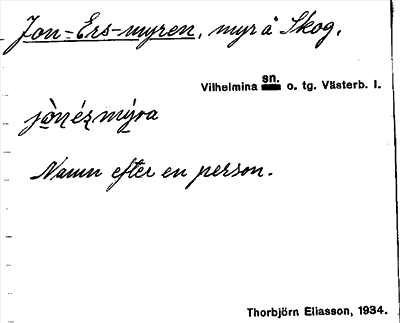 Jon-Ers-myren, myr å Skog.
Vilhelmina sn. o. tg. Västerb. l.
jò̀nézmýra
Namn efter en person.
Thorbjörn Eliasson, 1934.